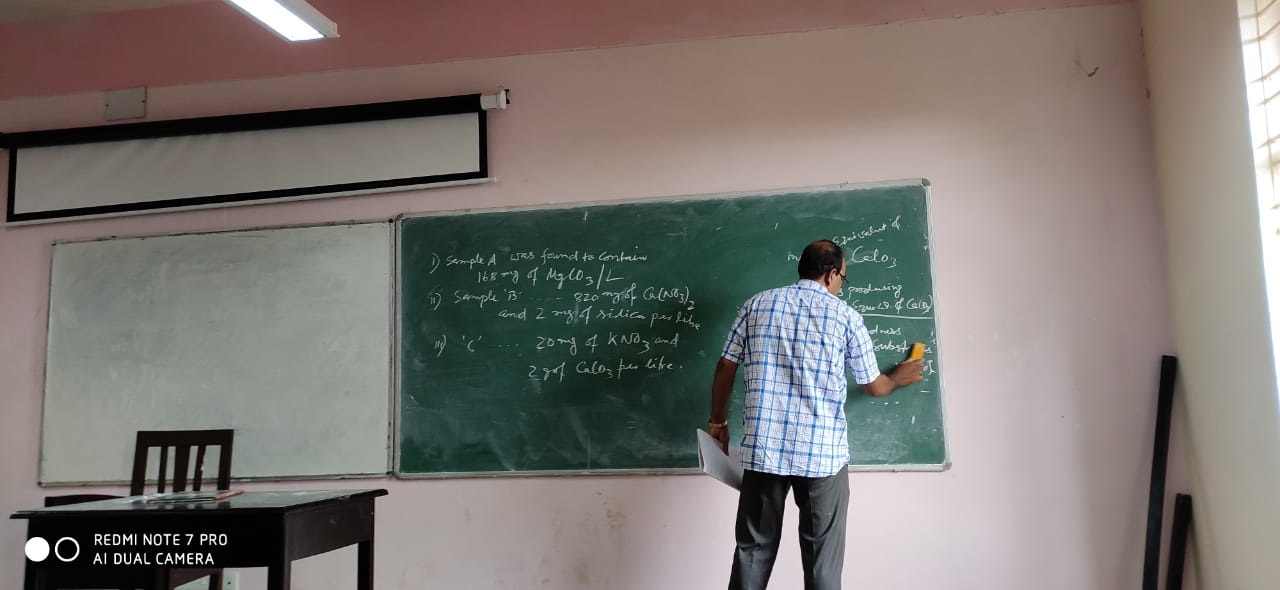 i) Sample A was found to contain
168 mg of MgCO3/L
ii) Sample 'B' .... 820 mg of Ca(NO3)2
and 2 mg of silica per litre
iii) 'C' .... 20 mg of KNO3 and
2 g of CaCO3 per litre.
Equivalent of
CaCO3
producing
of CaCO3
of
REDMI NOTE 7 PRO
AI DUAL CAMERA